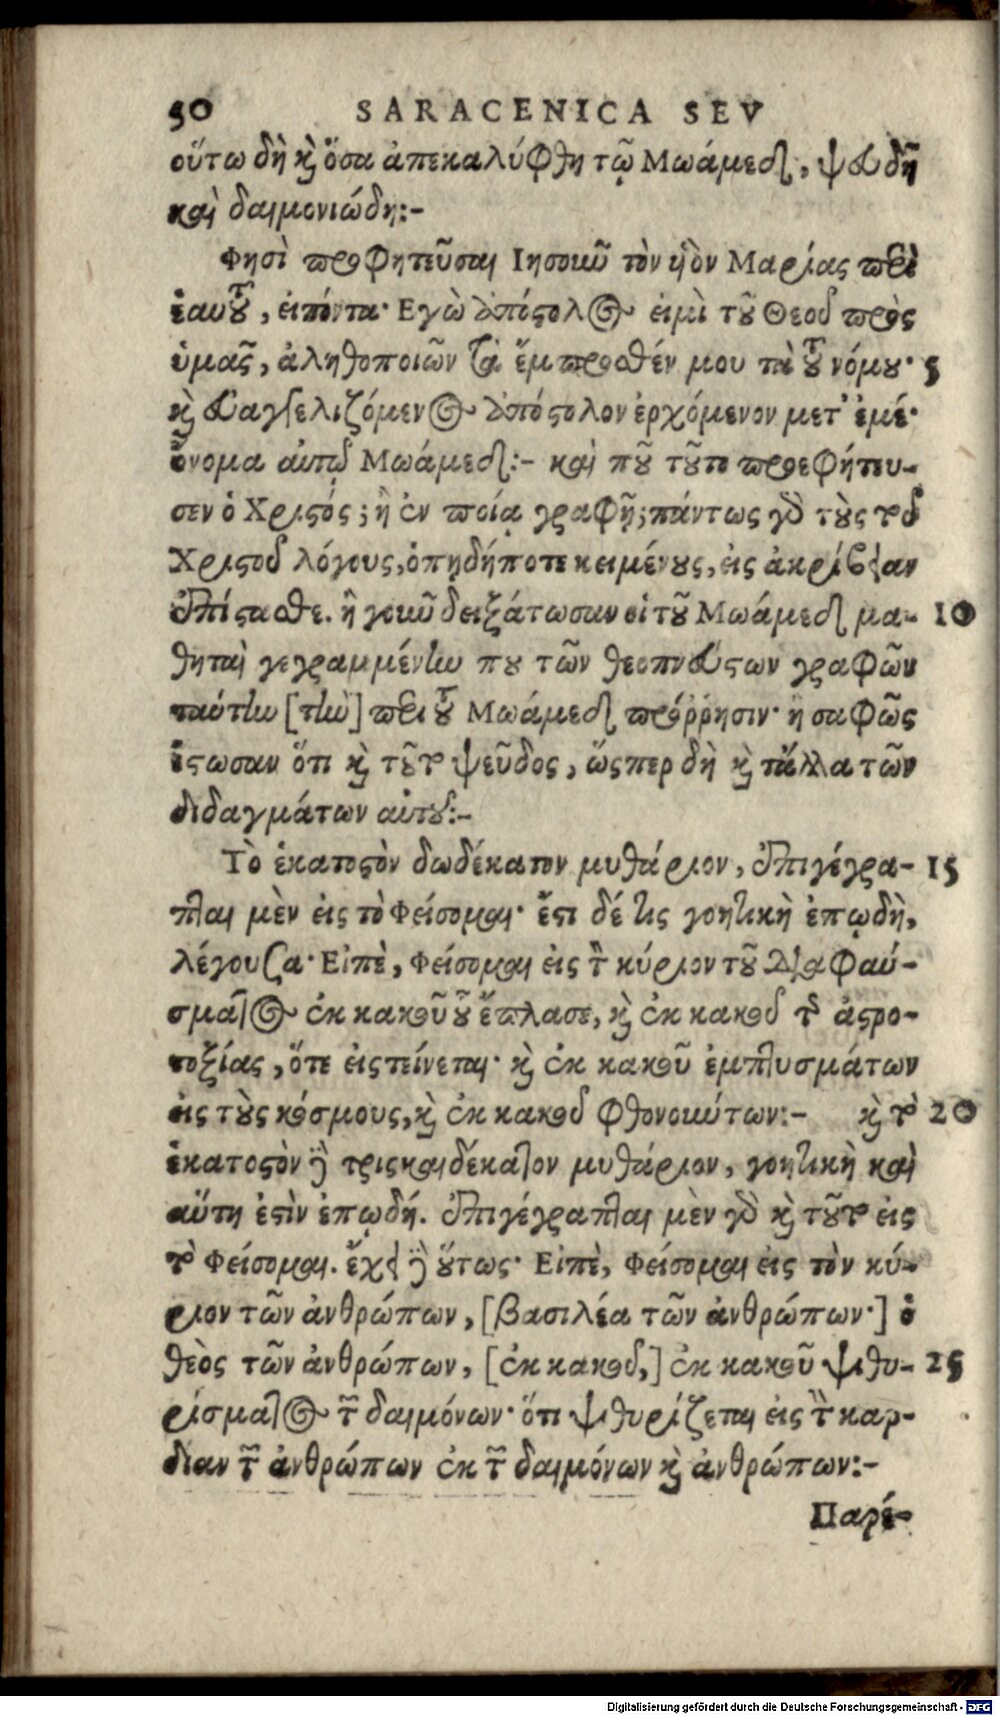 50 SARACENICA SEV
οὕτω δὴ καὶ ὅσα ἀπεκαλύφθη τῷ Μωάμεδ, ψευδῆ
καὶ δαιμονιώδη:-
Φησὶ προφητεῦσαι Ιησοιῦ τὸν ὑὸν Μαρίας περὶ
ἑαυτοῦ, εἰπόντα· Εγὼ ἀπόστολος εἰμὶ τοῦ Θεοῦ πρὸς
ὑμᾶς, ἀληθοποιῶν τὰ ἔμπροσθέν μου τὰ τοῦ νόμου· 5
καὶ εὐαγγελιζόμενος ἀπόστολον ἐρχόμενον μετ' ἐμέ·
ὄνομα αὐτῷ Μωάμεδ:- καὶ ποῦ τοῦτο προεφήτευ-
σεν ὁ Χριστός; ἢ ἐν ποίᾳ γραφῇ; πάντως γὰρ τοὺς τοῦ
Χριστοῦ λόγους, ὁπηδήποτε κειμένους, εἰς ἀκρίβειαν
ἐπίστασθε. ἢ γοιῦ δειξάτωσαν οἱ τοῦ Μωάμεδ μα- 10
θηταὶ γεγραμμένην που τῶν θεοπνεύστων γραφῶν
ταύτην [τὴν] περὶ τοῦ Μωάμεδ πρόῤῥησιν· ἢ σαφῶς
ἴστωσαν ὅτι καὶ τοῦτο ψεῦδος, ὥσπερ δὴ καὶ τἄλλα τῶν
διδαγμάτων αὐτοῦ:-
Τὸ ἑκατοστὸν δωδέκατον μυθάριον, ἐπιγέγρα- 15
πται μὲν εἰς τὸ Φείσομαι· ἔστι δέ τις γοητικὴ ἐπῳδὴ,
λέγουσα· Εἰπὲ, Φείσομαι εἰς τὸν κύριον τοῦ διαφαύ-
σματος ἐκ κακοῦ οὗ ἔπλασε, καὶ ἐκ κακοῦ τῆς ἀστρο-
τοξίας, ὅτε εἰστείνεται· καὶ ἐκ κακοῦ ἐμπτυσμάτων
εἰς τοὺς κόσμους, καὶ ἐκ κακοῦ φθονοιώτων:- καὶ τὸ 20
ἑκατοστὸν δὲ τρισκαιδέκατον μυθάριον, γοητικὴ καὶ
αὕτη ἐστὶν ἐπῳδή. ἐπιγέγραπται μὲν γὰρ καὶ τοῦτο εἰς
τὸ Φείσομαι. ἔχει δὲ οὕτως· Εἰπὲ, Φείσομαι εἰς τὸν κύ-
ριον τῶν ἀνθρώπων, [βασιλέα τῶν ἀνθρώπων·] ὁ
θεὸς τῶν ἀνθρώπων, [ἐκ κακοῦ,] ἐκ κακοῦ ψιθυ- 25
ρίσματος τῶν δαιμόνων· ὅτι ψιθυρίζεται εἰς τὴν καρ-
δίαν τῶν ἀνθρώπων ἐκ τῶν δαιμόνων καὶ ἀνθρώπων:-
Παρέ-
Digitalisierung gefördert durch die Deutsche Forschungsgemeinschaft - DFG